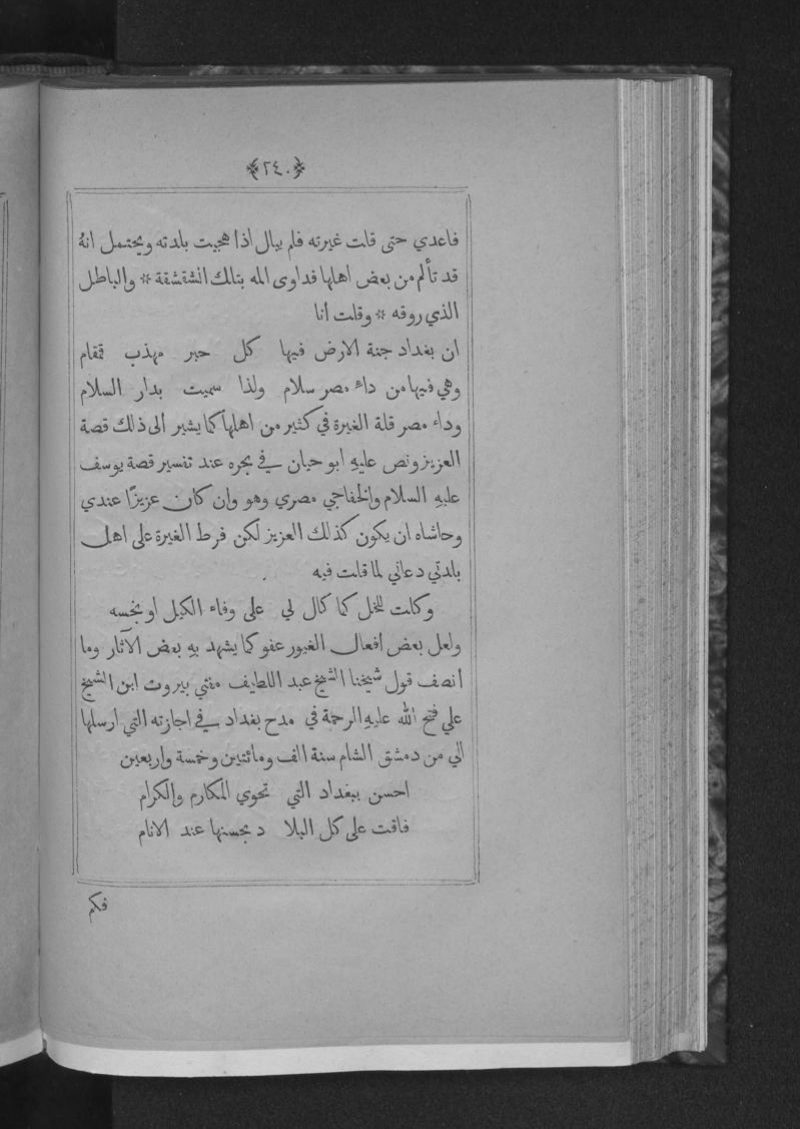 ﴿٢٤٠﴾
فاعدي حتى قلت غيرته فلم يبال اذا هجيت بلدته ويحتمل انهُ
قد تألم من بعض اهلها فداوى المه بتلك الشقشقة * والباطل
الذي روقه * وقلت انا
ان بغداد جنة الارض فيها كل حبر مهذب قمقام
وهي فيها من داء مصر سلام ولذا سميت بدار السلام
وداء مصر قلة الغيرة في كثير من اهلها كما يشير الى ذلك قصة
العزيز ونص عليهِ ابو حيان في بحره عند تفسير قصة يوسف
عليهِ السلام والخفاجي مصري وهو وان كان عزيزًا عندي
وحاشاه ان يكون كذلك العزيز لكن فرط الغيرة على اهل
بلدتي دعاني لما قلت فيه
وكلت للخل كما كال لي على وفاء الكيل او بخسه
ولعل بعض افعال الغيور عفو كما يشهد بهِ بعض الآثار وما
أنصف قول شيخنا الشيخ عبد اللطيف مفتي بيروت ابن الشيخ
علي فتح الله عليهِ الرحمة في مدح بغداد في اجازته التي ارسلها
الي من دمشق الشام سنة الف ومائتين وخمسة واربعين
احسن ببغداد التي تحوي المكارم والكرام
فاقت على كل البلا د بحسنها عند الانام
فكم